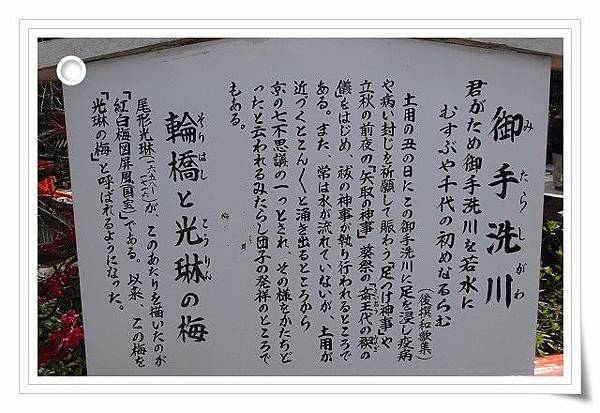 御手洗川
みたらしがわ
君がため御手洗川を若水に
むすぶや千代の初めなるらむ
（後撰和歌集）
土用の丑の日にこの御手洗川に足を浸し疫病
や病い封じを祈願して賑わう「足つけ神事」や
立秋の前夜の「矢取の神事」、葵祭の「斎王代の禊の
儀」をはじめ、祓の神事が執り行われるところで
ある。また、常は水が流れていないが、土用が
近づくとこんこんと湧き出るところから
京の七不思議の一つとされ、その様をかたちど
ったと云われるみたらし団子の発祥のところで
もある。
輪橋と光琳の梅
そりはし こうりん
尾形光琳が、このあたりを描いたのが
「紅白梅図屏風(国宝)」である。以来、この梅を
「光琳の梅」と呼ばれるようになった。